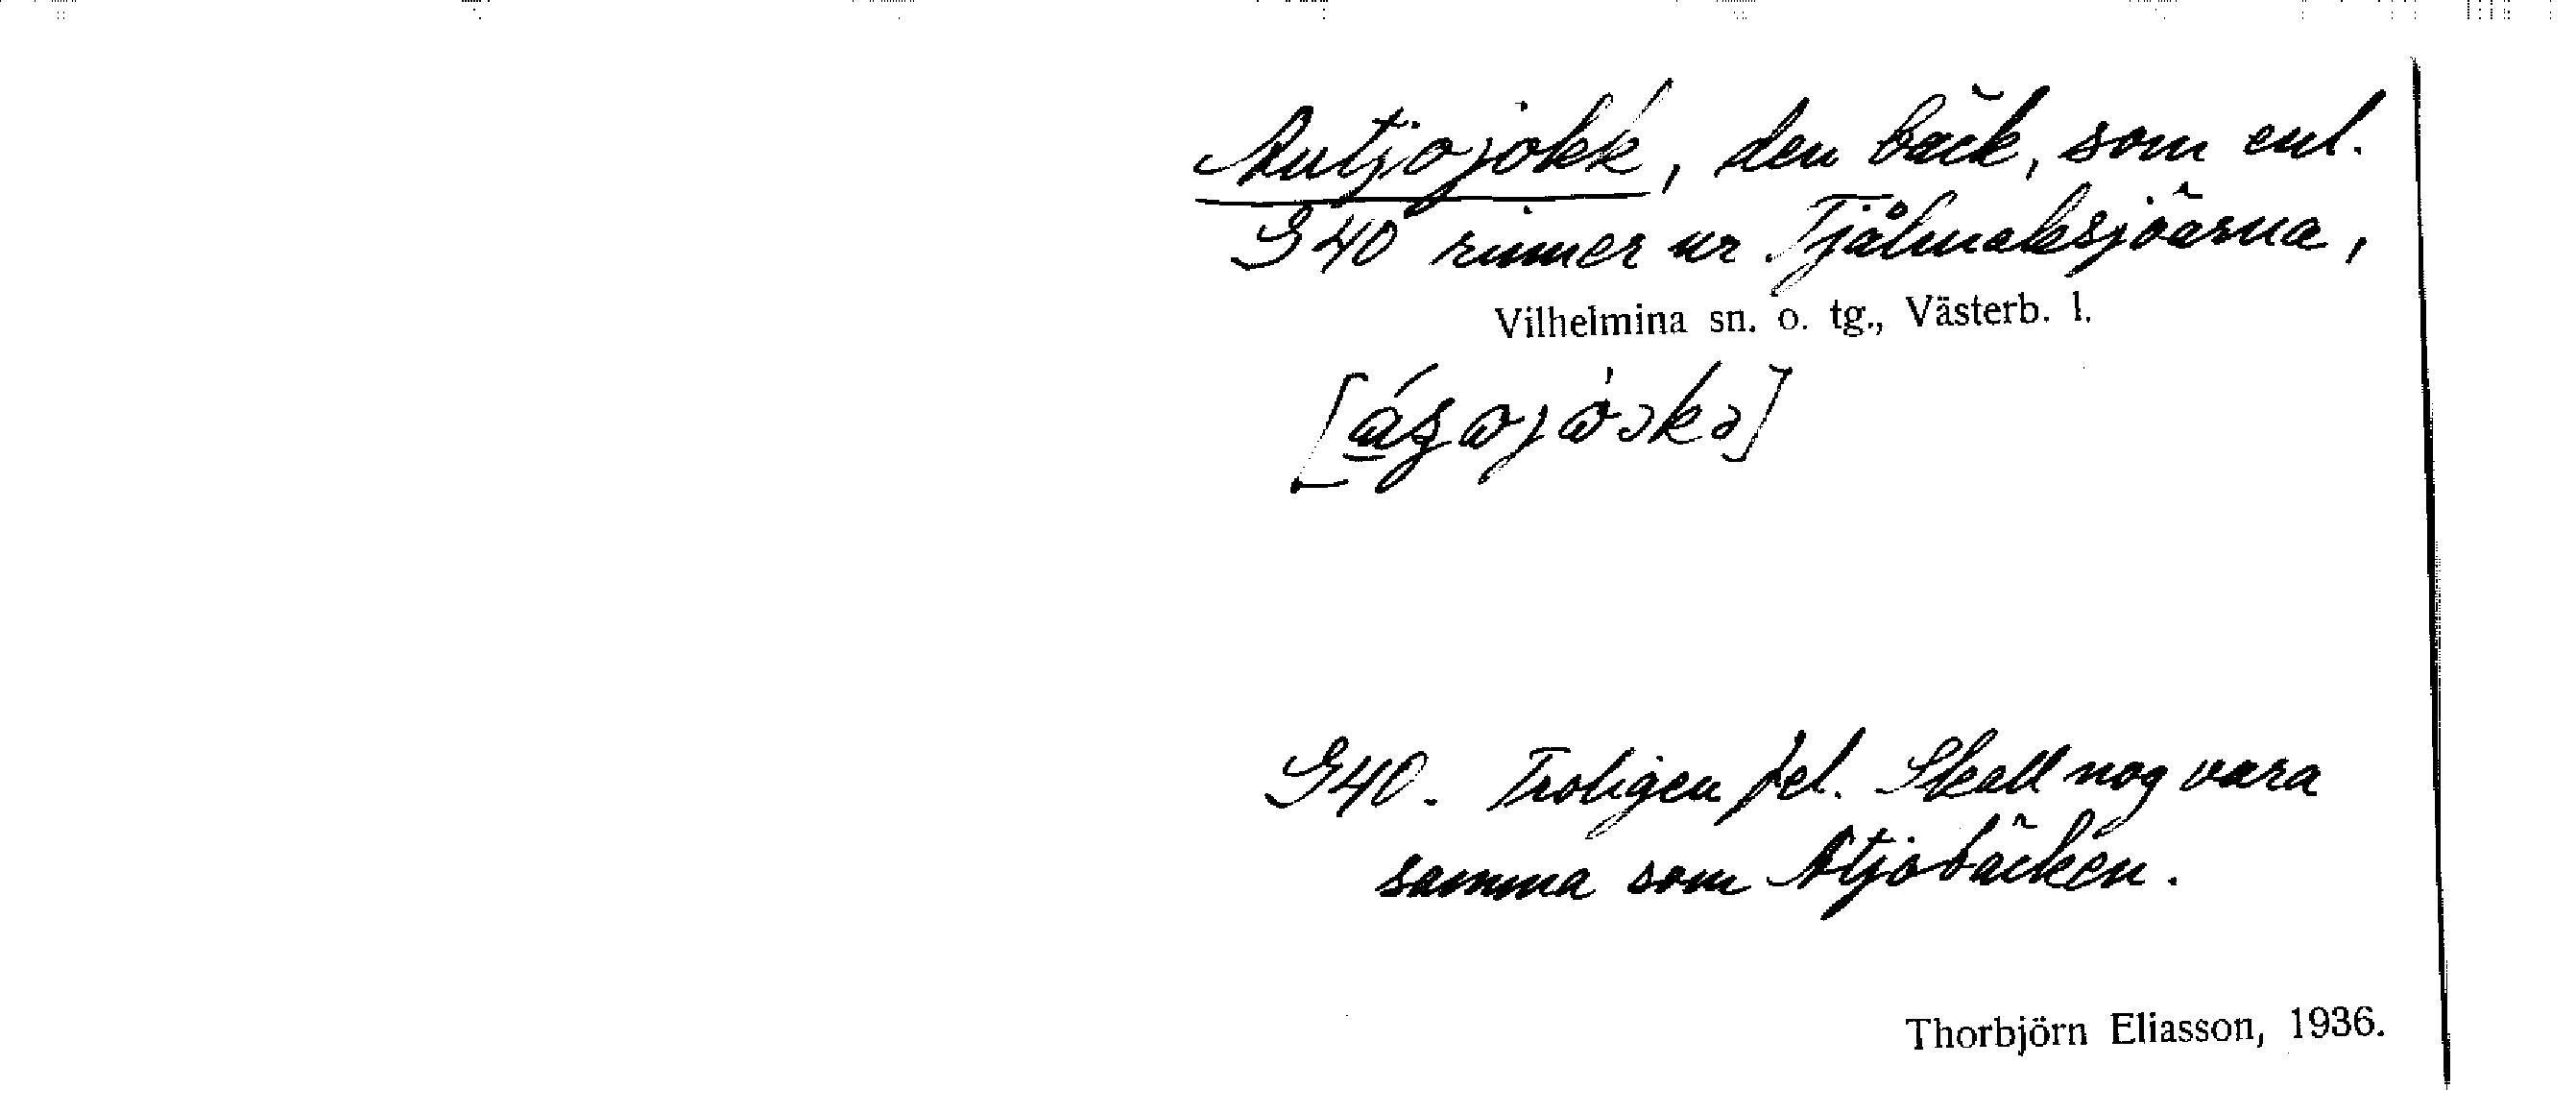 Autjojokk, den bäck, som enl.
G40 rinner ur Tjålmaksjöarna,
Vilhelmina sn. o. tg., Västerb. l.
G40. Troligen fel. Skall nog vara
samma som Atjobäcken.
Thorbjörn Eliasson, 1936.